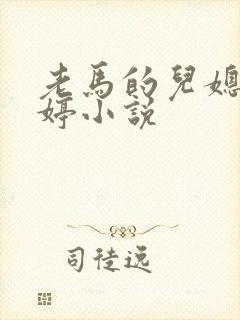 老馬的兒媳
婷小說
司徒逸